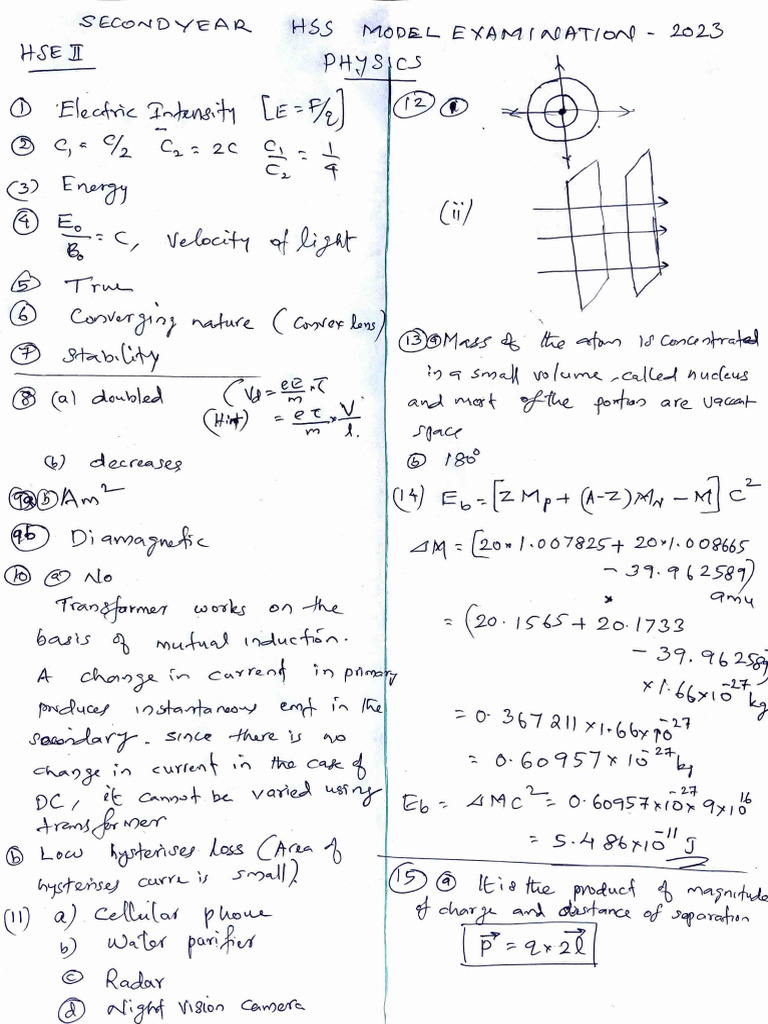 SECONDYEAR HSS MODEL EXAMINATION - 2023
HSE II
PHYSICS
① Electric Intensity [E = F/q]
② C₁ = C/2 C₂ = 2C C₁/C₂ = 1/4
(3) Energy
④ E₀/B₀ = C, velocity of light
⑤ True
⑥ Converging nature (Convex lens)
⑦ Stability
⑧ (a) doubled (Vd = eE/m × τ
(Hint) = eτ/m × V/l.
(b) decreases
9a Am²
9b Diamagnetic
⑩ ⓐ No
Transformer works on the
basis of mutual induction.
A change in current in primary
produces instantaneous emf in the
secondary. Since there is no
change in current in the case of
DC, it cannot be varied using
transformer
ⓑ Low hysterises loss (Area of
hysterises curve is small).
(11) a) Cellular phone
b) Water purifier
ⓒ Radar
ⓓ Night vision camera
⑫
(ii)
⑬ ⓐ Mass of the atom is concentrated
in a small volume, called nucleus
and most of the portion are vaccant
space
ⓑ 180°
(14) E_b = [Z M_p + (A-Z) M_N - M] C²
ΔM = [20 × 1.007825 + 20 × 1.008665
- 39.962589)
amu
= (20.1565 + 20.1733
- 39.962589
× 1.66 × 10⁻²⁷ kg
= 0.367211 × 1.66 × 10⁻²⁷
= 0.60957 × 10⁻²⁷ kg
E_b = ΔMC² = 0.60957 × 10⁻²⁷ × 9 × 10¹⁶
= 5.486 × 10⁻¹¹ J
⑮ ⓐ It is the product of magnitude
of charge and distance of separation
P⃗ = q × 2l⃗